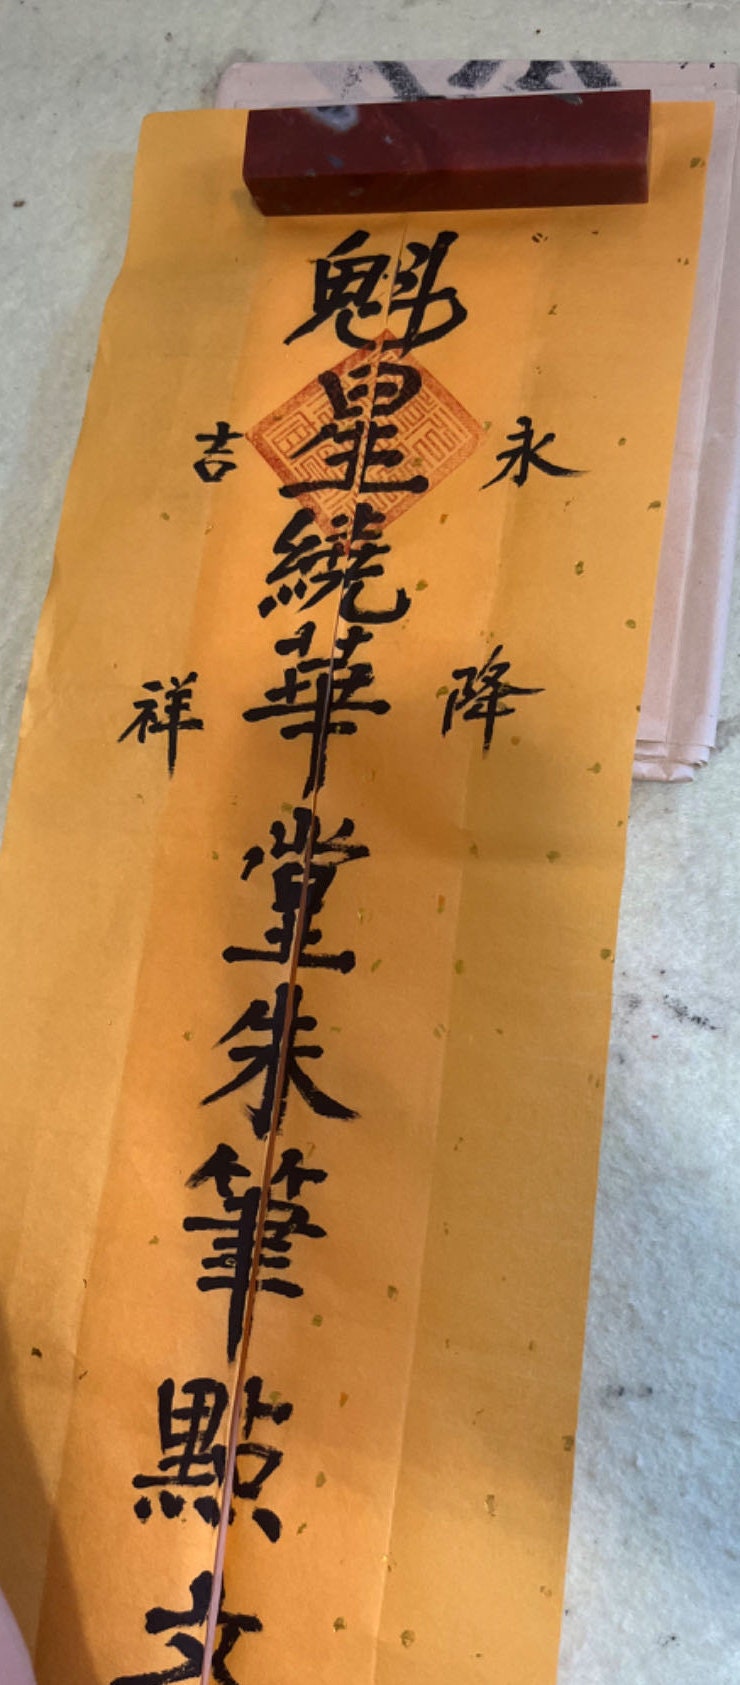 魁星繞華堂朱筆點文
永降
吉祥